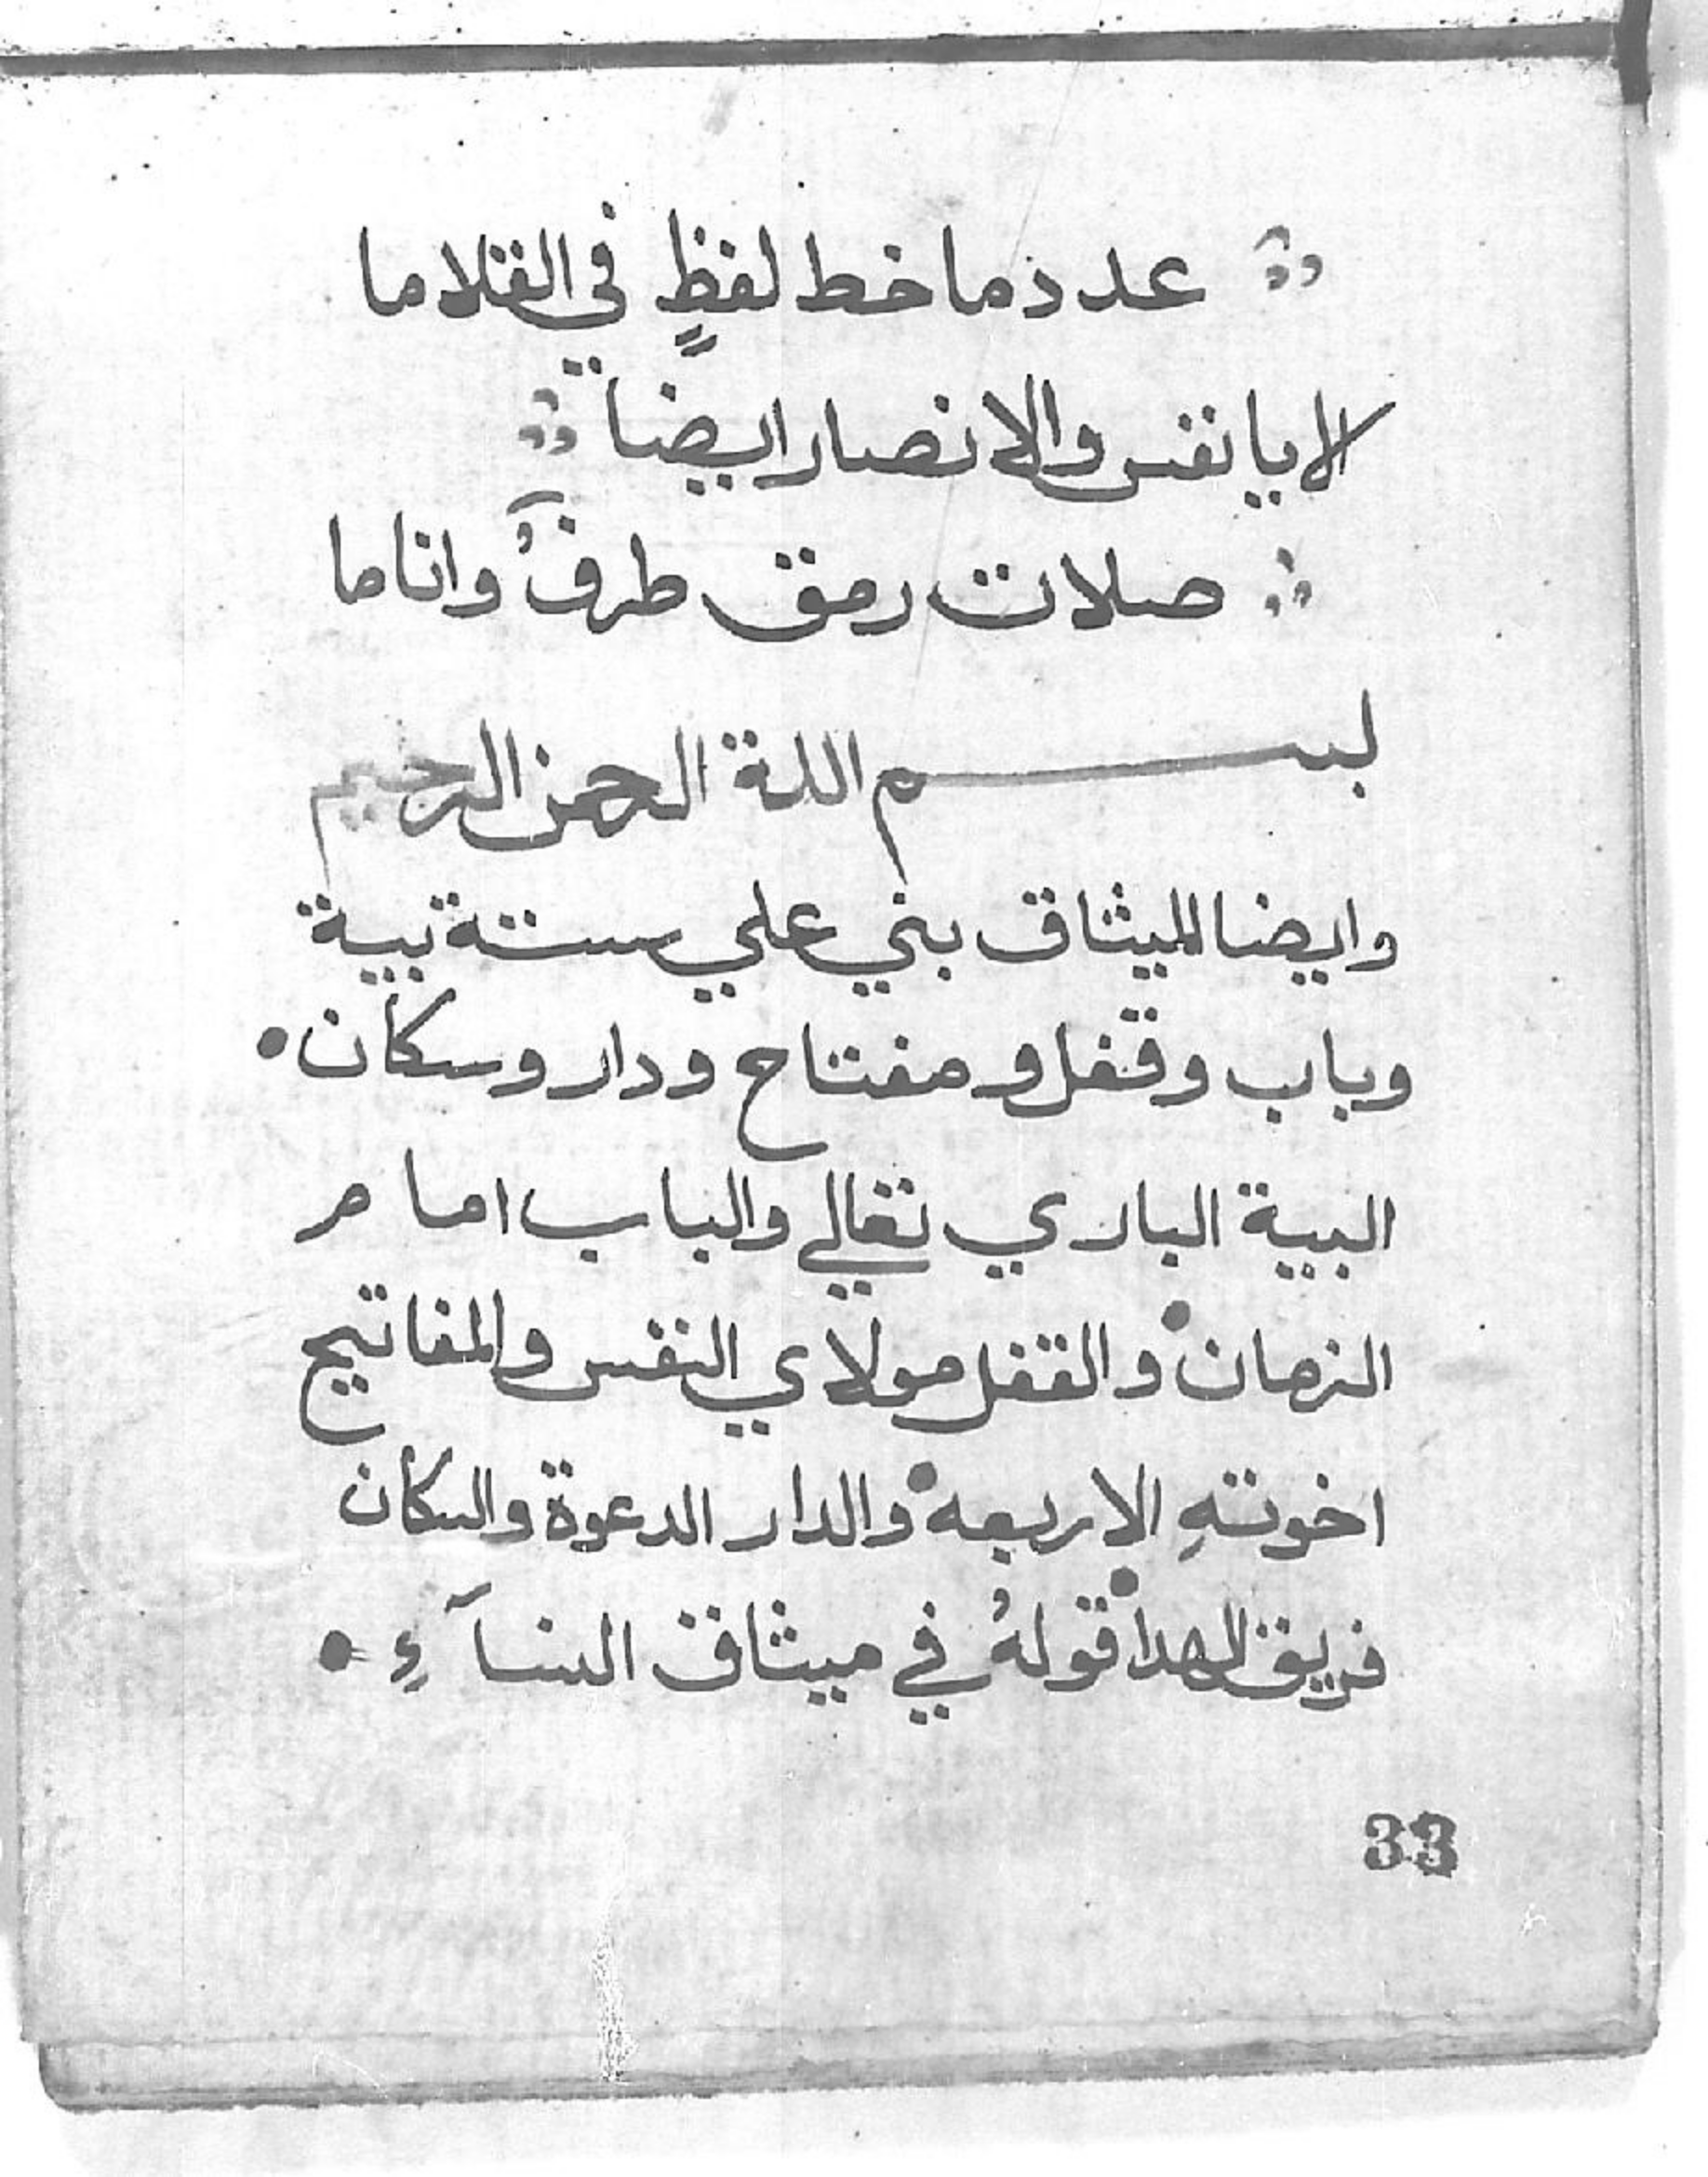 عدد ما خط لفظٍ في القلاما
لا يا نفس والانصار ايضا
صلات رمق طرفَُ واناما
بسم اللة الرحمن الرحيم
وايضا الميثاق بني علي ستة بية
وباب وقفل ومفتاح ودار وسكان •
البية الباري تعالي والباب امام
الزمان • والقفل مولاي النفس والمفاتيح
اخوتهِ الاربعه • والدار الدعوة والسكان
فريق الهدا • قولهُ في ميثاق النسآءِ •
33